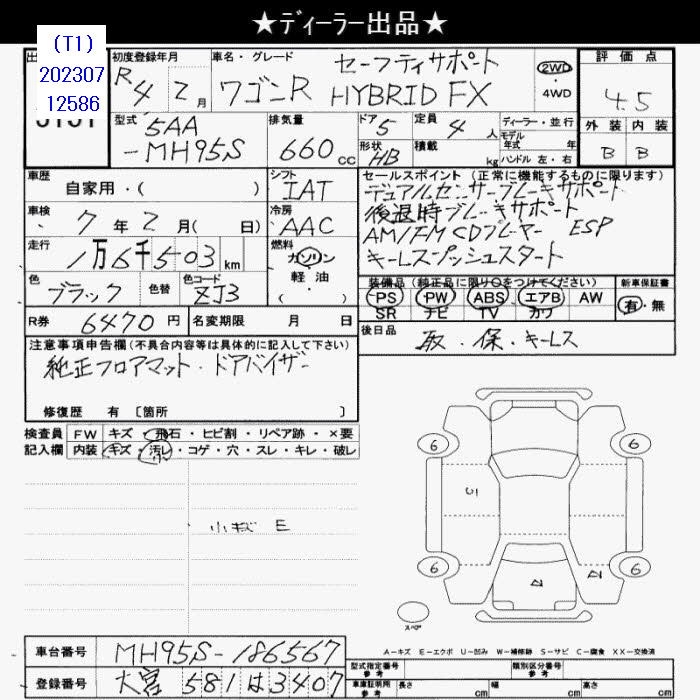 ★ディーラー出品★
(T1)
202307
12586
初度登録年月 R4 2月
車名・グレード ワゴンR セーフティサポート HYBRID FX
2WD・4WD
評価点 4.5
外装 内装
B B
型式 5AA-MH95S
排気量 660cc
ドア 5
形状 HB
定員 4人
積載 kg
ディーラー・並行
モデル年式 年
ハンドル 左・右
車歴 自家用・( )
シフト IAT
セールスポイント (正常に機能するものに限ります)
デュアルセンサーブレーキサポート
後退時ブレーキサポート
AM/FM CDプレーヤー ESP
キーレスプッシュスタート
車検 7年2月( 日)
冷房 AAC
走行 1万6千503km
燃料 ガソリン・軽油・( )
色 ブラック
色替
色コード ZJ3
装備品 (純正品に限り○をつけてください)
PS PW ABS エアB AW
SR ナビ TV カワ
新車保証書 有・無
R券 6470円
名変期限 月 日
後日品 取・保・キーレス
注意事項申告欄(不具合内容等は具体的に記入して下さい)
純正フロアマット・ドアバイザー
修復歴 有 〔箇所 〕
検査員 FW キズ・飛石・ヒビ割・リペア跡・×要
記入欄 内装 キズ・汚レ・コゲ・穴・スレ・キレ・破レ
小キズ E
6 6
6 6
スペア
A-キズ E-エクボ U-凹み W-補修跡 S-サビ C-腐食 XX-交換済
車台番号 MH95S-186567
登録番号 大宮 581 は 3407
型式指定番号 参考
類別区分番号 参考
車庫証明用 参考 長さ cm 幅 cm 高さ cm